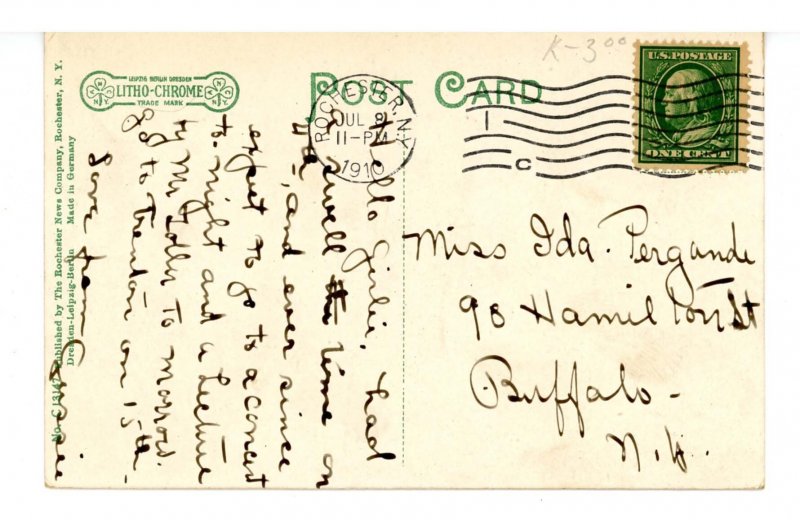 K-3⁰⁰
POST CARD
LEIPZIG BERLIN DRESDEN
LITHO-CHROME
TRADE MARK
ROCHESTER, N.Y.
JUL 8
11-PM
1910
1
C
U.S. POSTAGE
ONE CENT
Miss Ida Pergande
98 Hamilton St
Buffalo-
N.Y.
Hello Girlie, had
a swell time on
4th, and ever since
expect to go to a concert
to-night and a Lecture
by Mr. to morrow.
go to Trenton on 15th.
Love from
No. C 13147 Published by The Rochester News Company, Rochester, N. Y.
Dresden-Leipzig-Berlin Made in Germany